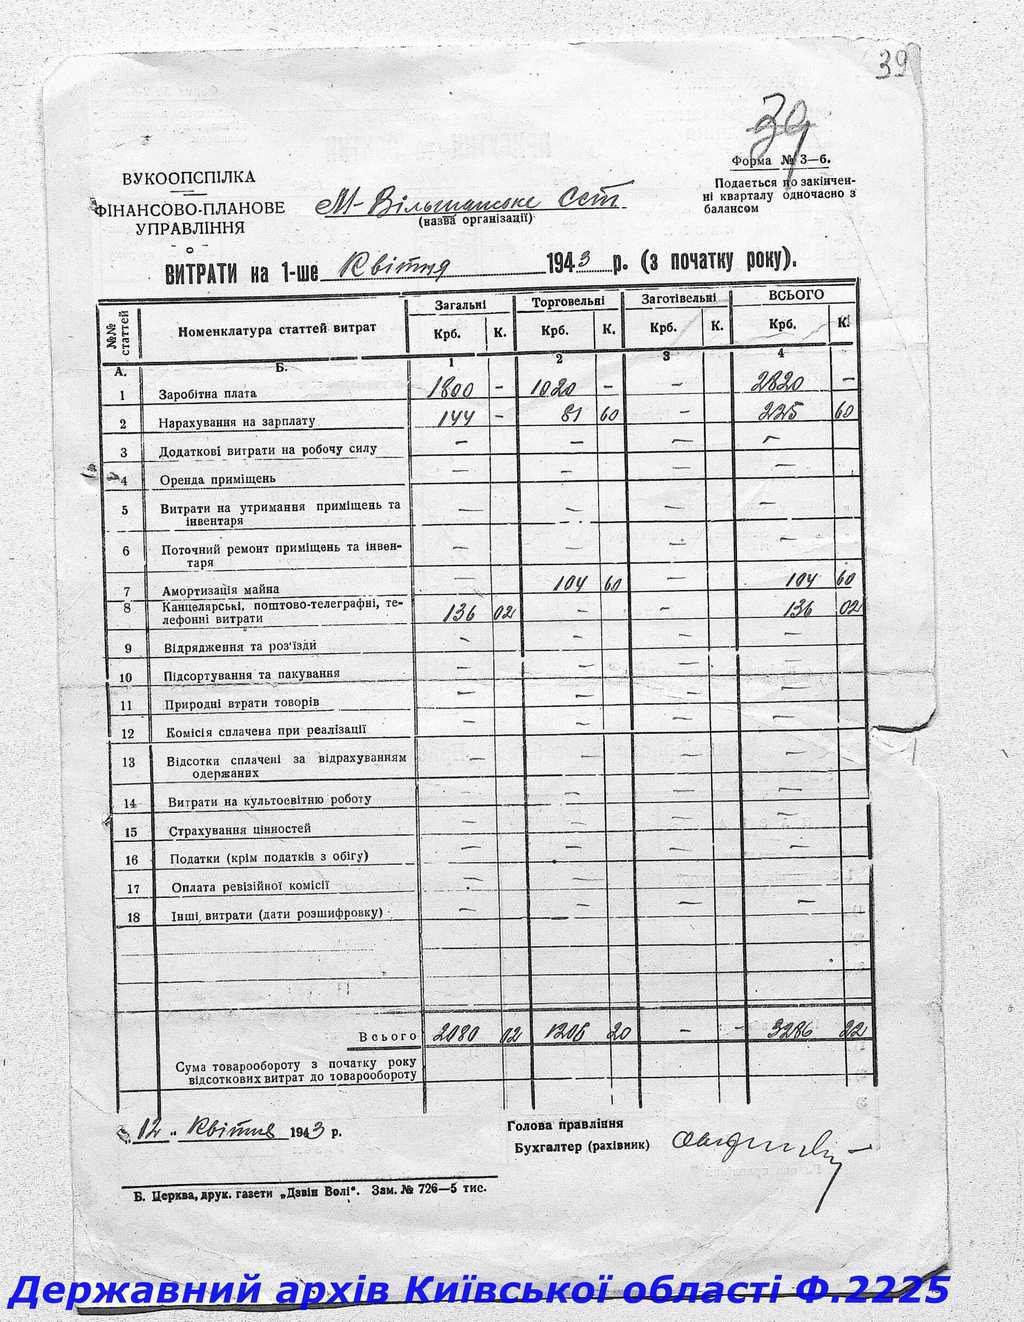 39
39
Форма № 3—б.
ВУКООПСПІЛКА
ФІНАНСОВО-ПЛАНОВЕ
УПРАВЛІННЯ
Подається по закінчен-
ні кварталу одночасно з
балансом
М-Вільшанське ССТ
(назва організації)
ВИТРАТИ на 1-ше Квітня 1943 р. (з початку року).
№№ статтей Номенклатура статтей витрат Загальні Торговельні Заготівельні ВСЬОГО
Крб. К. Крб. К. Крб. К. Крб. К.
А. Б. 1 2 3 4
1 Заробітна плата 1800 — 1020 — — 2820 —
2 Нарахування на зарплату 144 — 81 60 — 225 60
3 Додаткові витрати на робочу силу — — — —
4 Оренда приміщень — — — —
5 Витрати на утримання приміщень та
інвентаря — — — —
6 Поточний ремонт приміщень та інвен-
таря — — — —
7 Амортизація майна — 104 60 — 104 60
8 Канцелярські, поштово-телеграфні, те-
лефонні витрати 136 02 — — 136 02
9 Відрядження та роз'їзди — — — —
10 Підсортування та пакування — — — —
11 Природні втрати товорів — — — —
12 Комісія сплачена при реалізації — — — —
13 Відсотки сплачені за відрахуванням
одержаних — — — —
14 Витрати на культосвітню роботу — — — —
15 Страхування цінностей — — — —
16 Податки (крім податків з обігу) — — — —
17 Оплата ревізійної комісії — — — —
18 Інші витрати (дати розшифровку) — — — —
Всього 2080 02 1206 20 — 3286 22
Сума товарообороту з початку року
відсоткових витрат до товарообороту
„12" Квітня 1943 р.
Голова правління
Бухгалтер (рахівник)
Б. Церква, друк. газети „Дзвін Волі". Зам. № 726—5 тис.
Державний архів Київської області Ф.2225